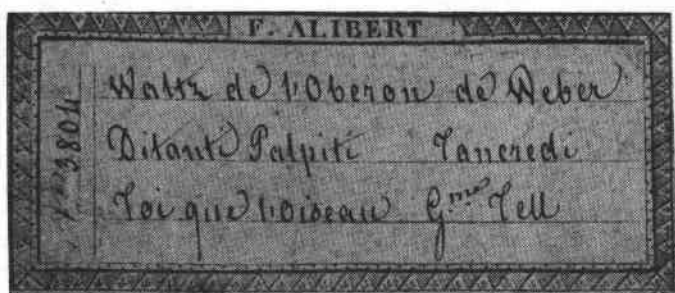 F. ALIBERT
Waltz de l'Oberon de Weber
Ditanti Palpiti Tancredi
Toi que l'oiseau Gme Tell
3804